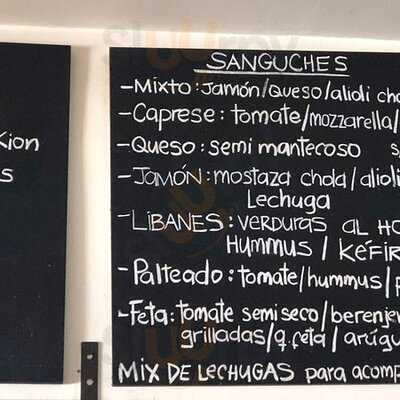 Kion
s
SANGUCHES
-Mixto: Jamón/Queso/alioli cho
-Caprese: tomate/mozzarella/
-Queso: semi mantecoso s/
-JAMÓN: mostaza chola/alioli
Lechuga
-LIBANES: VERDURAS AL HO
HUMMUS / KÉFIR
-Palteado: tomate/hummus/p
-Feta: tomate semiseco/berenje
grilladas/q.feta/arúgu
MIX DE LECHUGAS para acomp